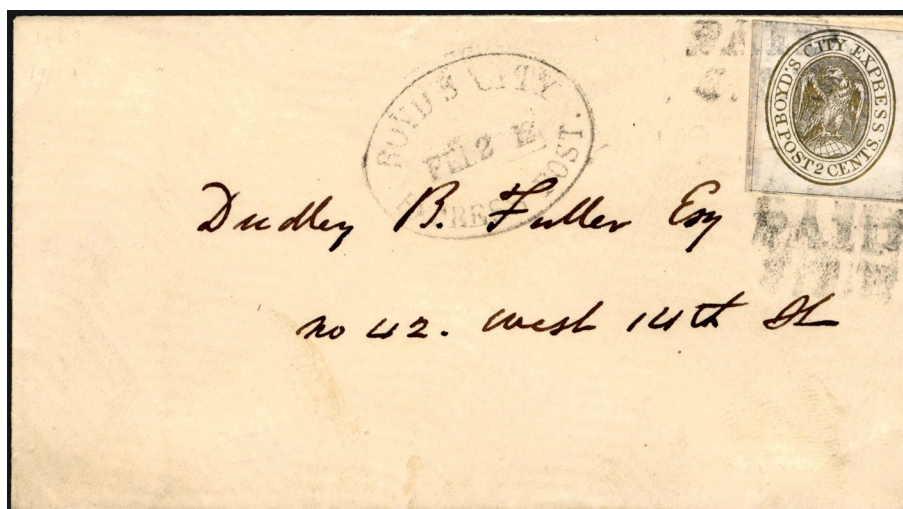 BOYD'S CITY
FEB 12
EXPRESS POST.
PAID
BOYD'S CITY EXPRESS
POST 2 CENTS.
PAID
Dudley B. Fuller Esq
no 42. west 14th St